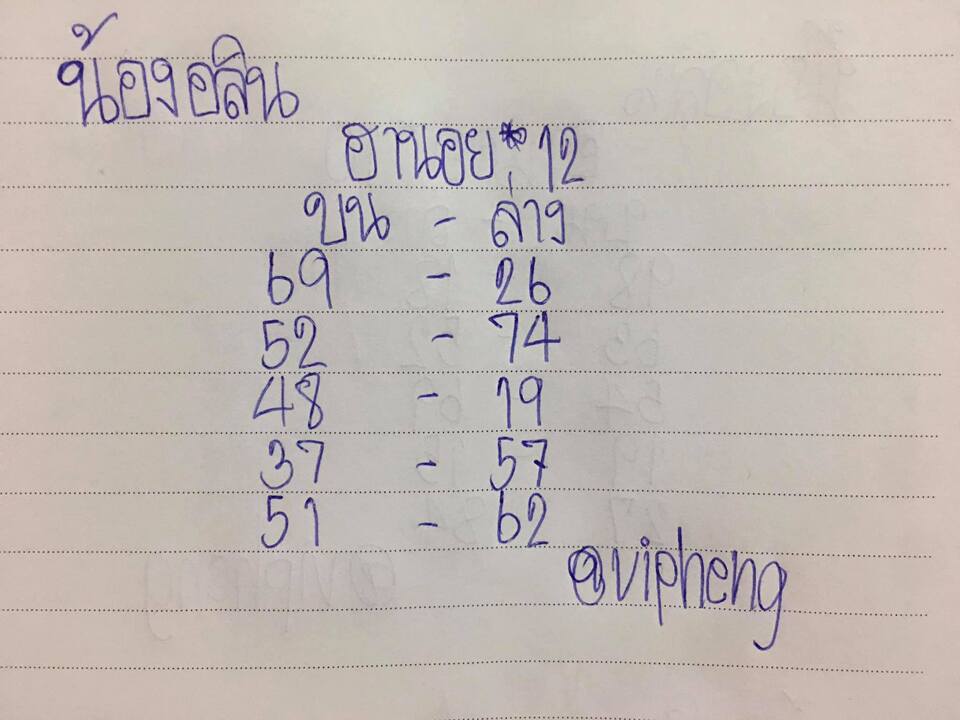 น้องอสิน
ฮานอย * 12
บน - ล่าง
69 - 26
52 - 74
48 - 19
37 - 57
51 - 62
@vipheng